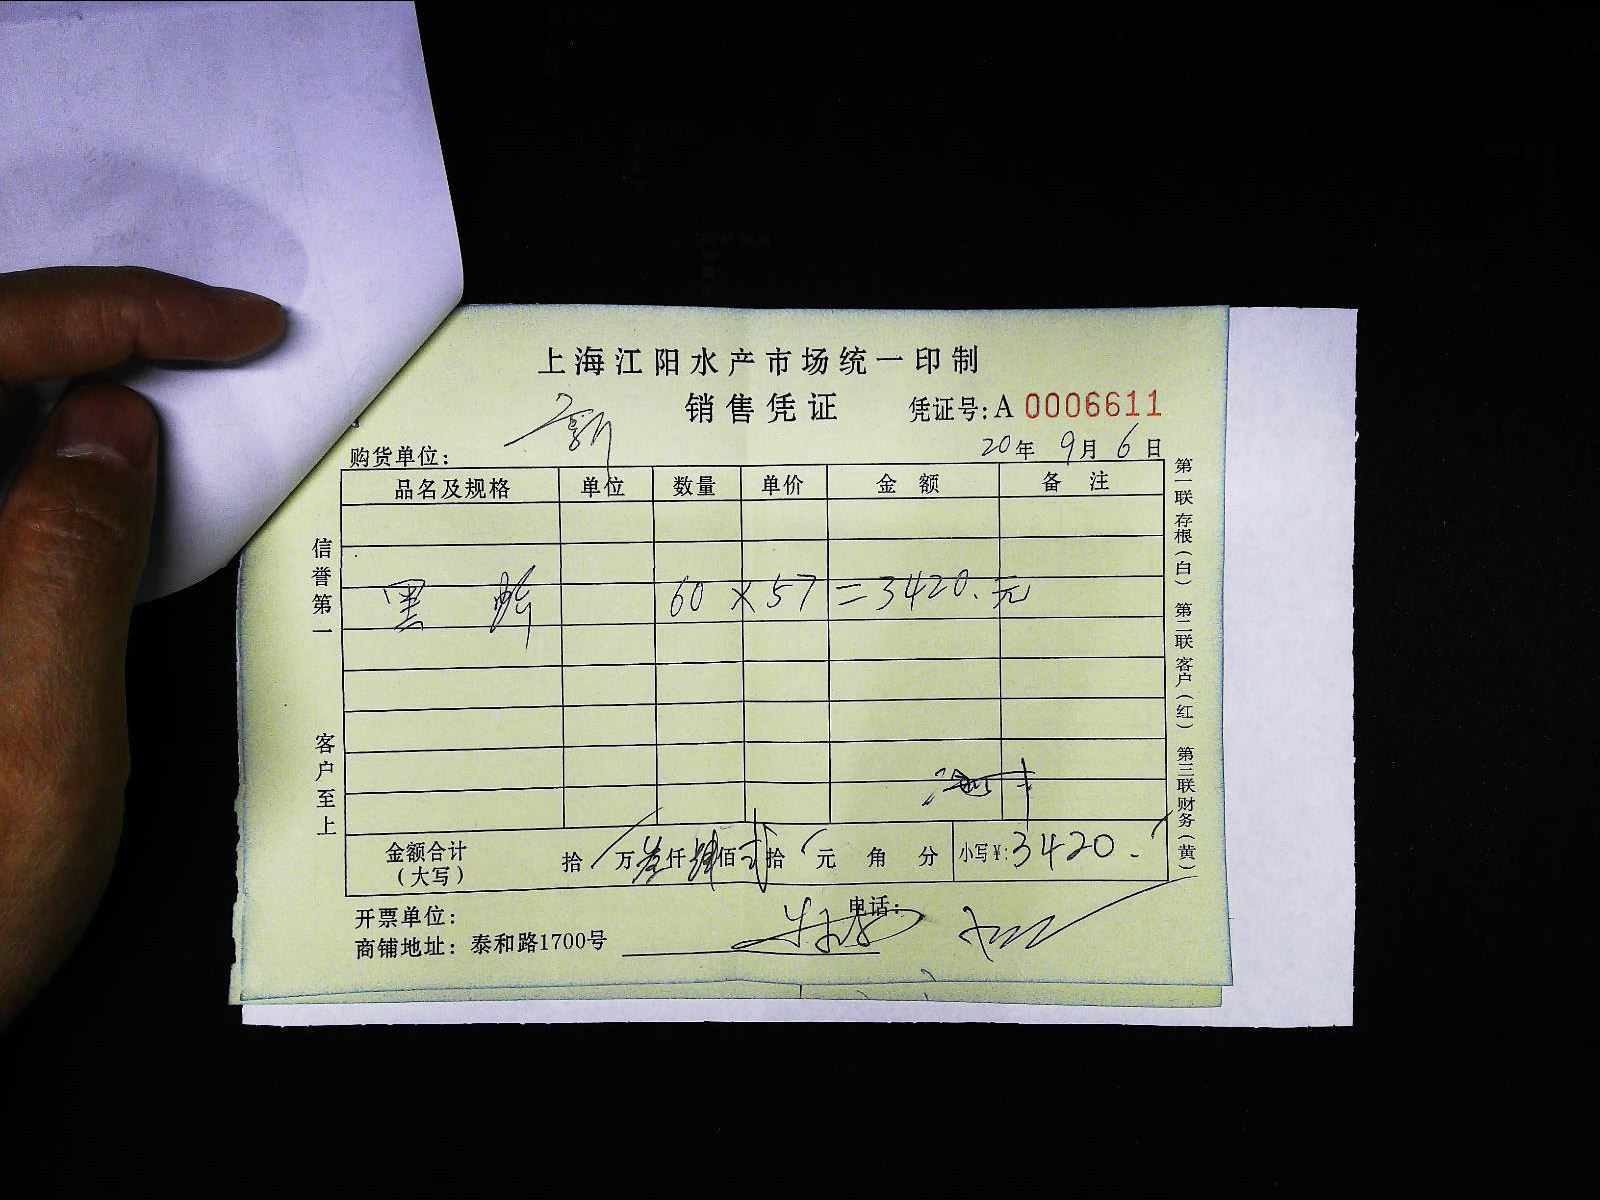 上海江阳水产市场统一印制
销售凭证 凭证号:A 0006611
购货单位: 20年 9月 6日
品名及规格 单位 数量 单价 金额 备注
黑 60 × 57 = 3420.元
金额合计（大写） 拾 万叁仟肆佰贰拾 元 角 分 小写¥:3420.
开票单位: 电话:
商铺地址: 泰和路1700号
信誉第一 客户至上
第一联存根（白） 第二联客户（红） 第三联财务（黄）